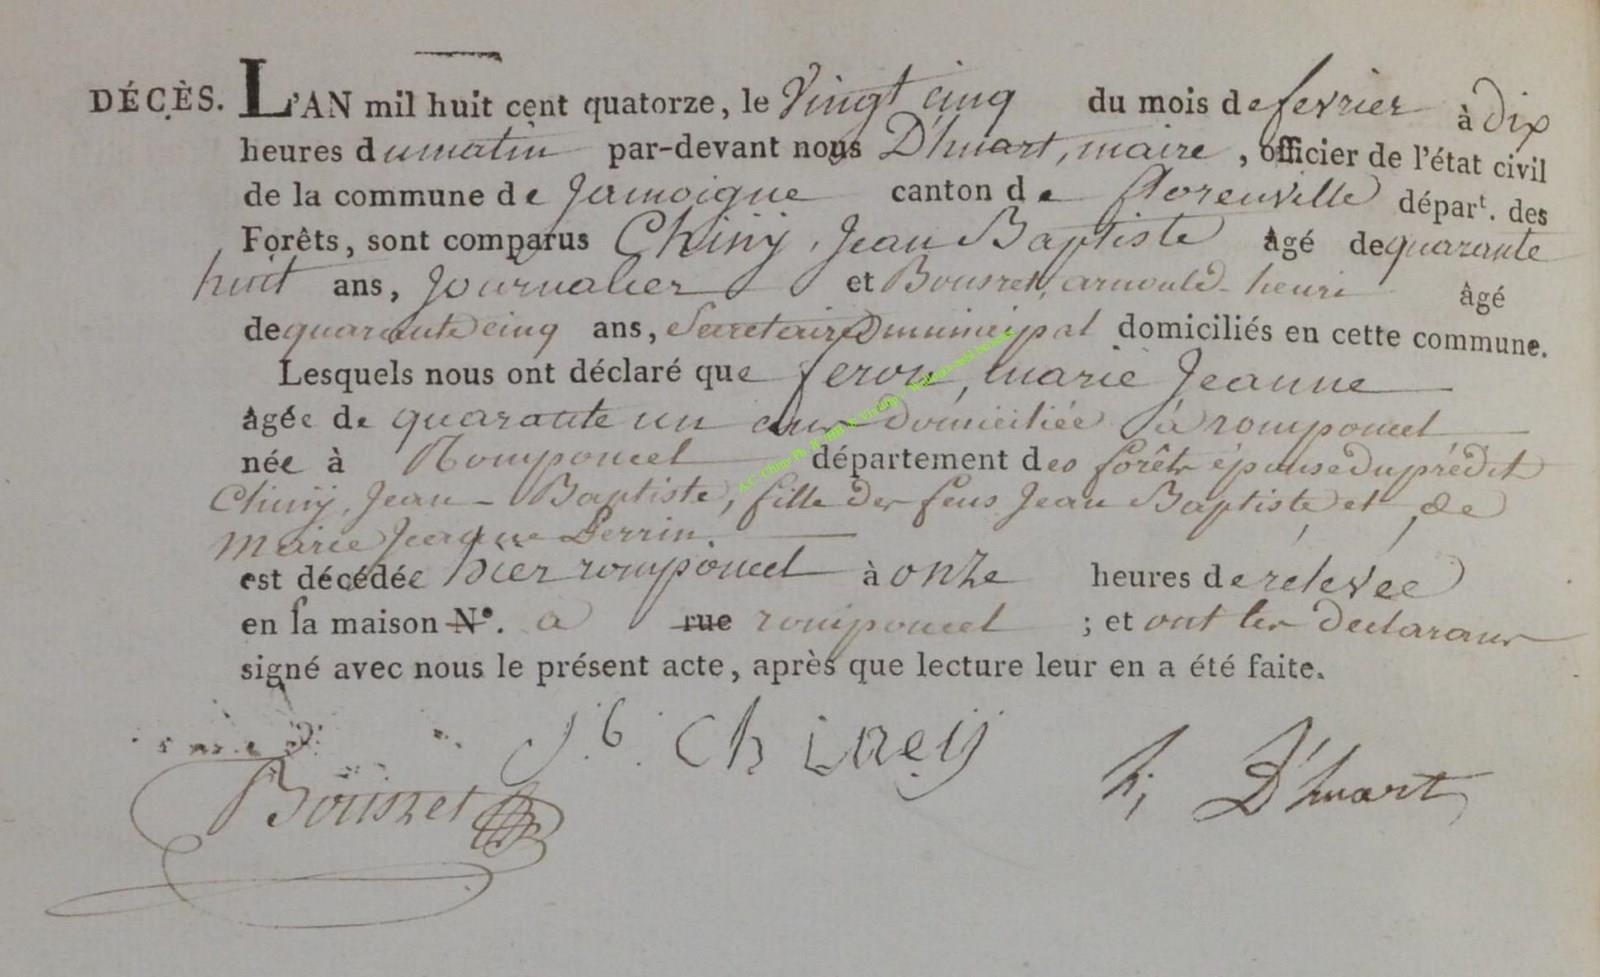 DÉCÈS. L'AN mil huit cent quatorze, le Vingt cinq du mois de fevrier à dix
heures du matin par-devant nous D'huart, maire, officier de l'état civil
de la commune de Jamoigne canton de florenville départ. des
Forêts, sont comparus Chiny, Jean Baptiste âgé de quarante
huit ans, Journalier et Bousret, arnould-henri âgé
de quarante cinq ans, Secretaire municipal domiciliés en cette commune.
Lesquels nous ont déclaré que feron, marie Jeanne
âgée de quarante un ans domiciliée à romponcel
née à Romponcel département des forêts épouse du prédit
Chiny, Jean-Baptiste, fille des feus Jean Baptiste et de
Marie Jeanne Perrin.
est décédée hier romponcel à onze heures de relevée
en sa maison N°. a rue romponcel ; et ont les declarans
signé avec nous le présent acte, après que lecture leur en a été faite.
J. b. Chiney
Bousret
h, D'huart